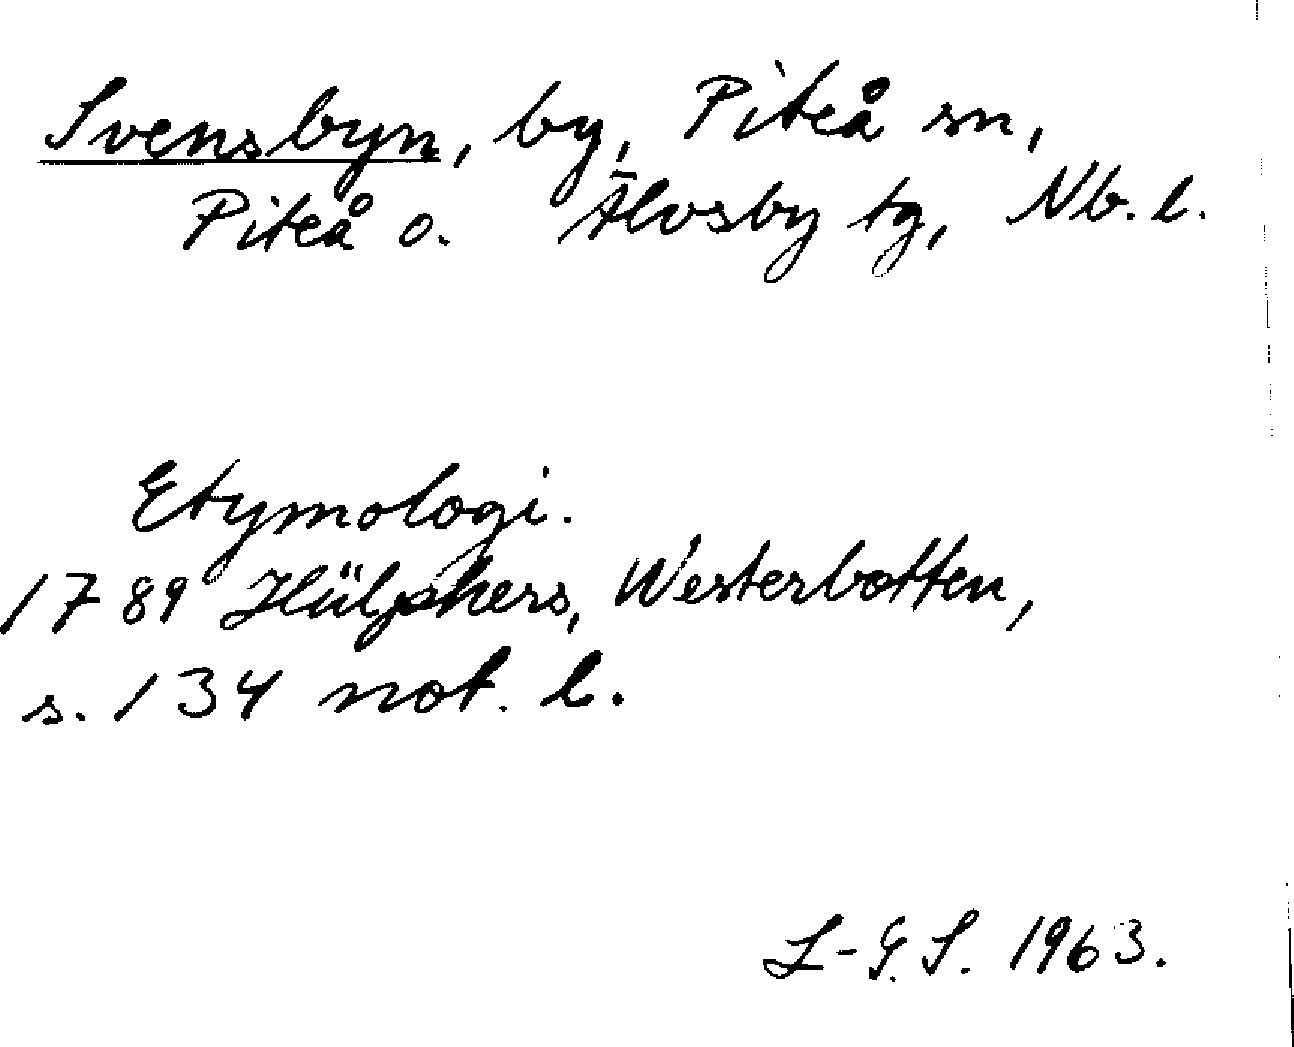 Svensbyn, by, Piteå sn,
Piteå o. Älvsby tg, Nb. l.
Etymologi.
1789 Hülphers, Westerbotten,
s. 134 not. l.
L-G. S. 1963.